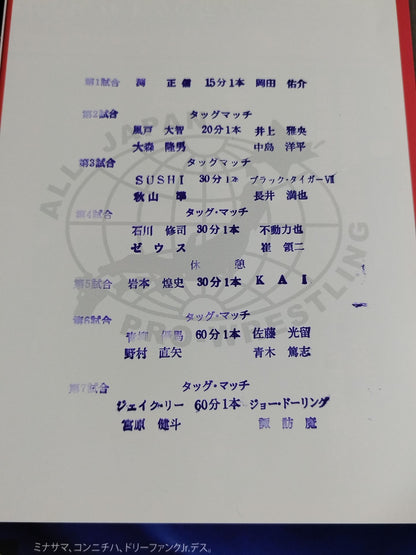 第1試合 渕 正信 15分1本 岡田 佑介
第2試合 タッグマッチ
風戸 大智 20分1本 井上 雅央
大森 隆男 中島 洋平
第3試合 タッグマッチ
SUSHI 30分1本 ブラック・タイガーⅦ
秋山 準 長井 満也
第4試合 タッグ・マッチ
石川 修司 30分1本 不動力也
ゼウス 崔 領二
休 憩
第5試合 岩本 煌史 30分1本 KAI
第6試合 タッグ・マッチ
青柳 優馬 60分1本 佐藤 光留
野村 直矢 青木 篤志
第7試合 タッグ・マッチ
ジェイク・リー 60分1本 ジョー・ドーリング
宮原 健斗 諏訪魔
ALL JAPAN
PRO-WRESTLING
ミナサマ、コンニチハ、ドリーファンクJr.デス。